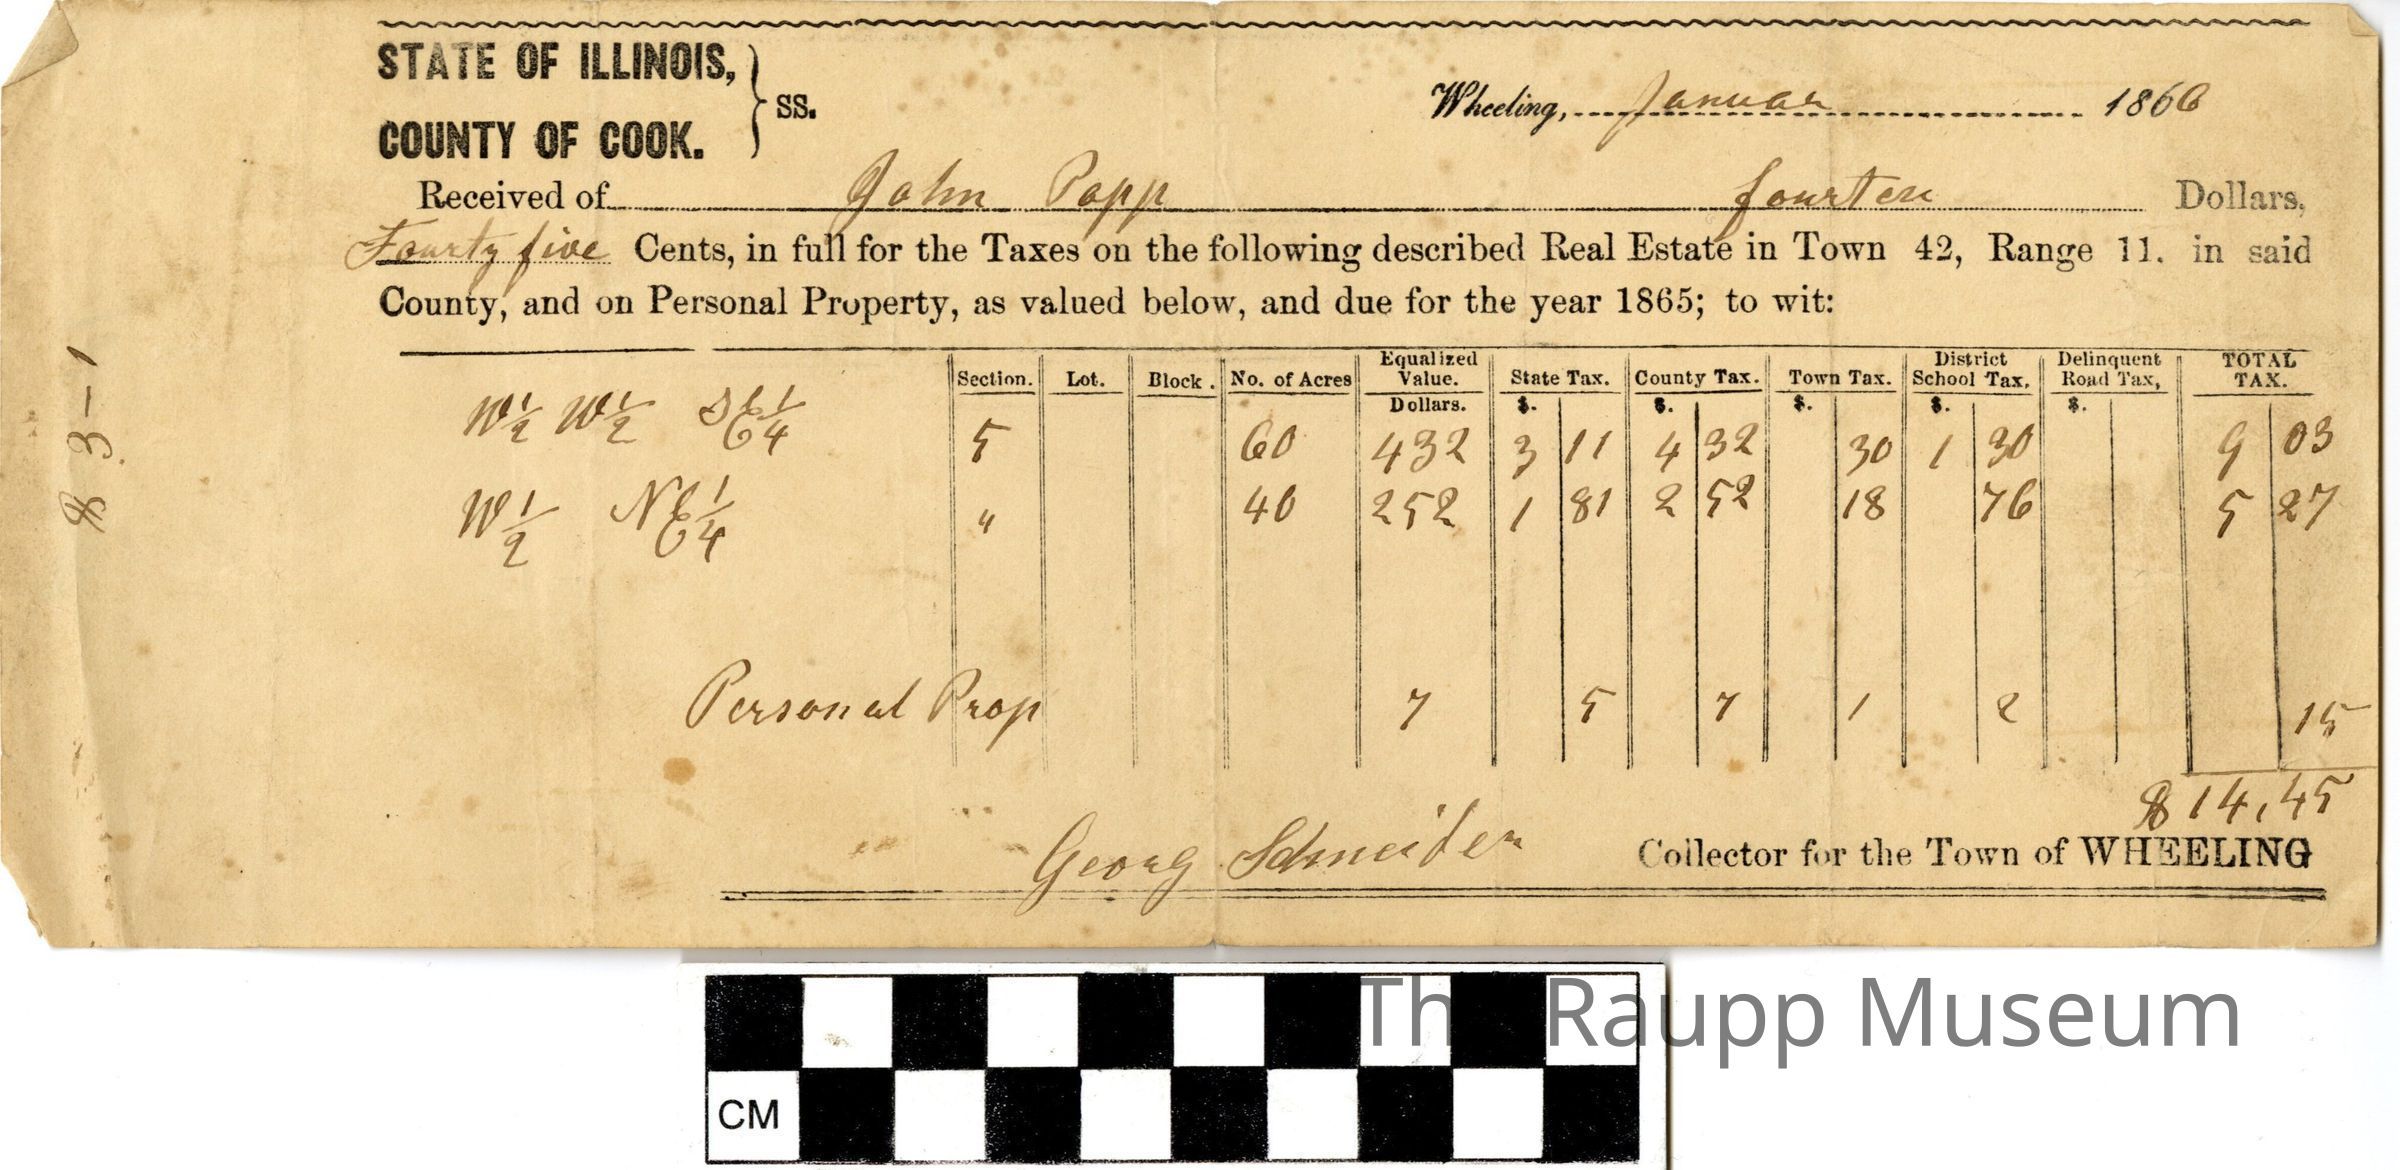 STATE OF ILLINOIS,
COUNTY OF COOK. } ss.
Wheeling, Januar 1866
Received of John Popp fourten Dollars,
Fourty five Cents, in full for the Taxes on the following described Real Estate in Town 42, Range 11. in said
County, and on Personal Property, as valued below, and due for the year 1865; to wit:
Section. Lot. Block. No. of Acres Equalized Value. Dollars. State Tax. $. County Tax. $. Town Tax. $. District School Tax. $. Delinquent Road Tax, $. TOTAL TAX.
W 1/2 W 1/2 SE 1/4 5 60 432 3 11 4 32 30 1 30 9 03
W 1/2 NE 1/4 " 40 252 1 81 2 52 18 76 5 27
Personal Prop 7 5 7 1 2 15
$ 14,45
Georg Schneider Collector for the Town of WHEELING
$ 3-1
CM
The Raupp Museum